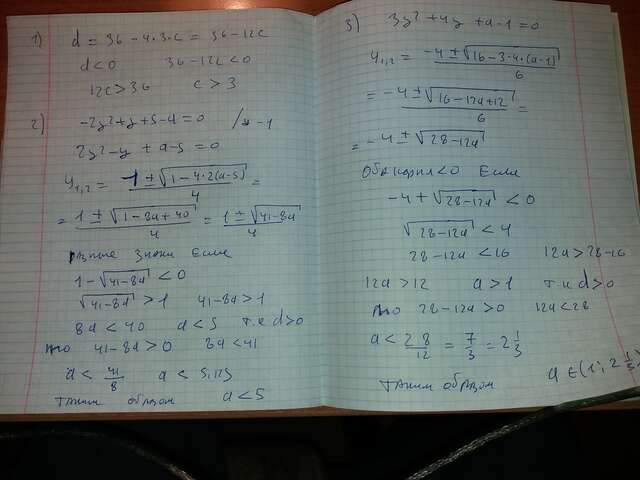 1) d = 36 - 4·3·c = 36 - 12c
d < 0 36 - 12c < 0
12c > 36 c > 3
2) -2y² + y + 5 - a = 0 / × -1
2y² - y + a - 5 = 0
y₁,₂ = 1 ± √(1 - 4·2(a-5)) / 4 =
= 1 ± √(1 - 8a + 40) / 4 = 1 ± √(41 - 8a) / 4
знаки если
1 - √(41 - 8a) < 0
√(41 - 8a) > 1 41 - 8a > 1
8a < 40 a < 5 т.к d > 0
то 41 - 8a > 0 8a < 41
a < 41/8 a < 5,125
Таким образом a < 5
3) 3y² + 4y + a - 1 = 0
y₁,₂ = -4 ± √(16 - 3·4·(a-1)) / 6
= -4 ± √(16 - 12a + 12) / 6 =
= -4 ± √(28 - 12a) / 6
Оба корня < 0 если
-4 + √(28 - 12a) < 0
√(28 - 12a) < 4
28 - 12a < 16 12a > 28 - 16
12a > 12 a > 1 т.к d > 0
то 28 - 12a > 0 12a < 28
a < 28/12 = 7/3 = 2 1/3
Таким образом a ∈ (1; 2 1/3)